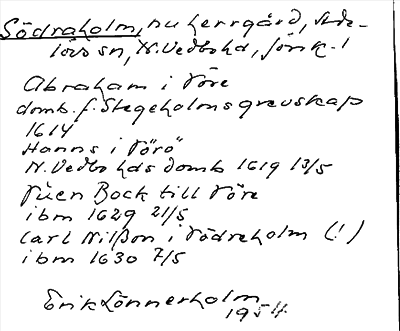 Södraholm, nu herrgård, Ask-
lövs sn, N. Vedbo hd, Jönk. l
Abraham i Töre
domb. f. Stegeholms grevskap
1614
Hanns i Törö
N. Vedbo hds domb 1619 13/5
Tüen Bock till Töre
ibm 1629 21/5
Carl Nilßon i Tödreholm (!)
ibm 1630 7/5
Erik Lönnerholm
1954.